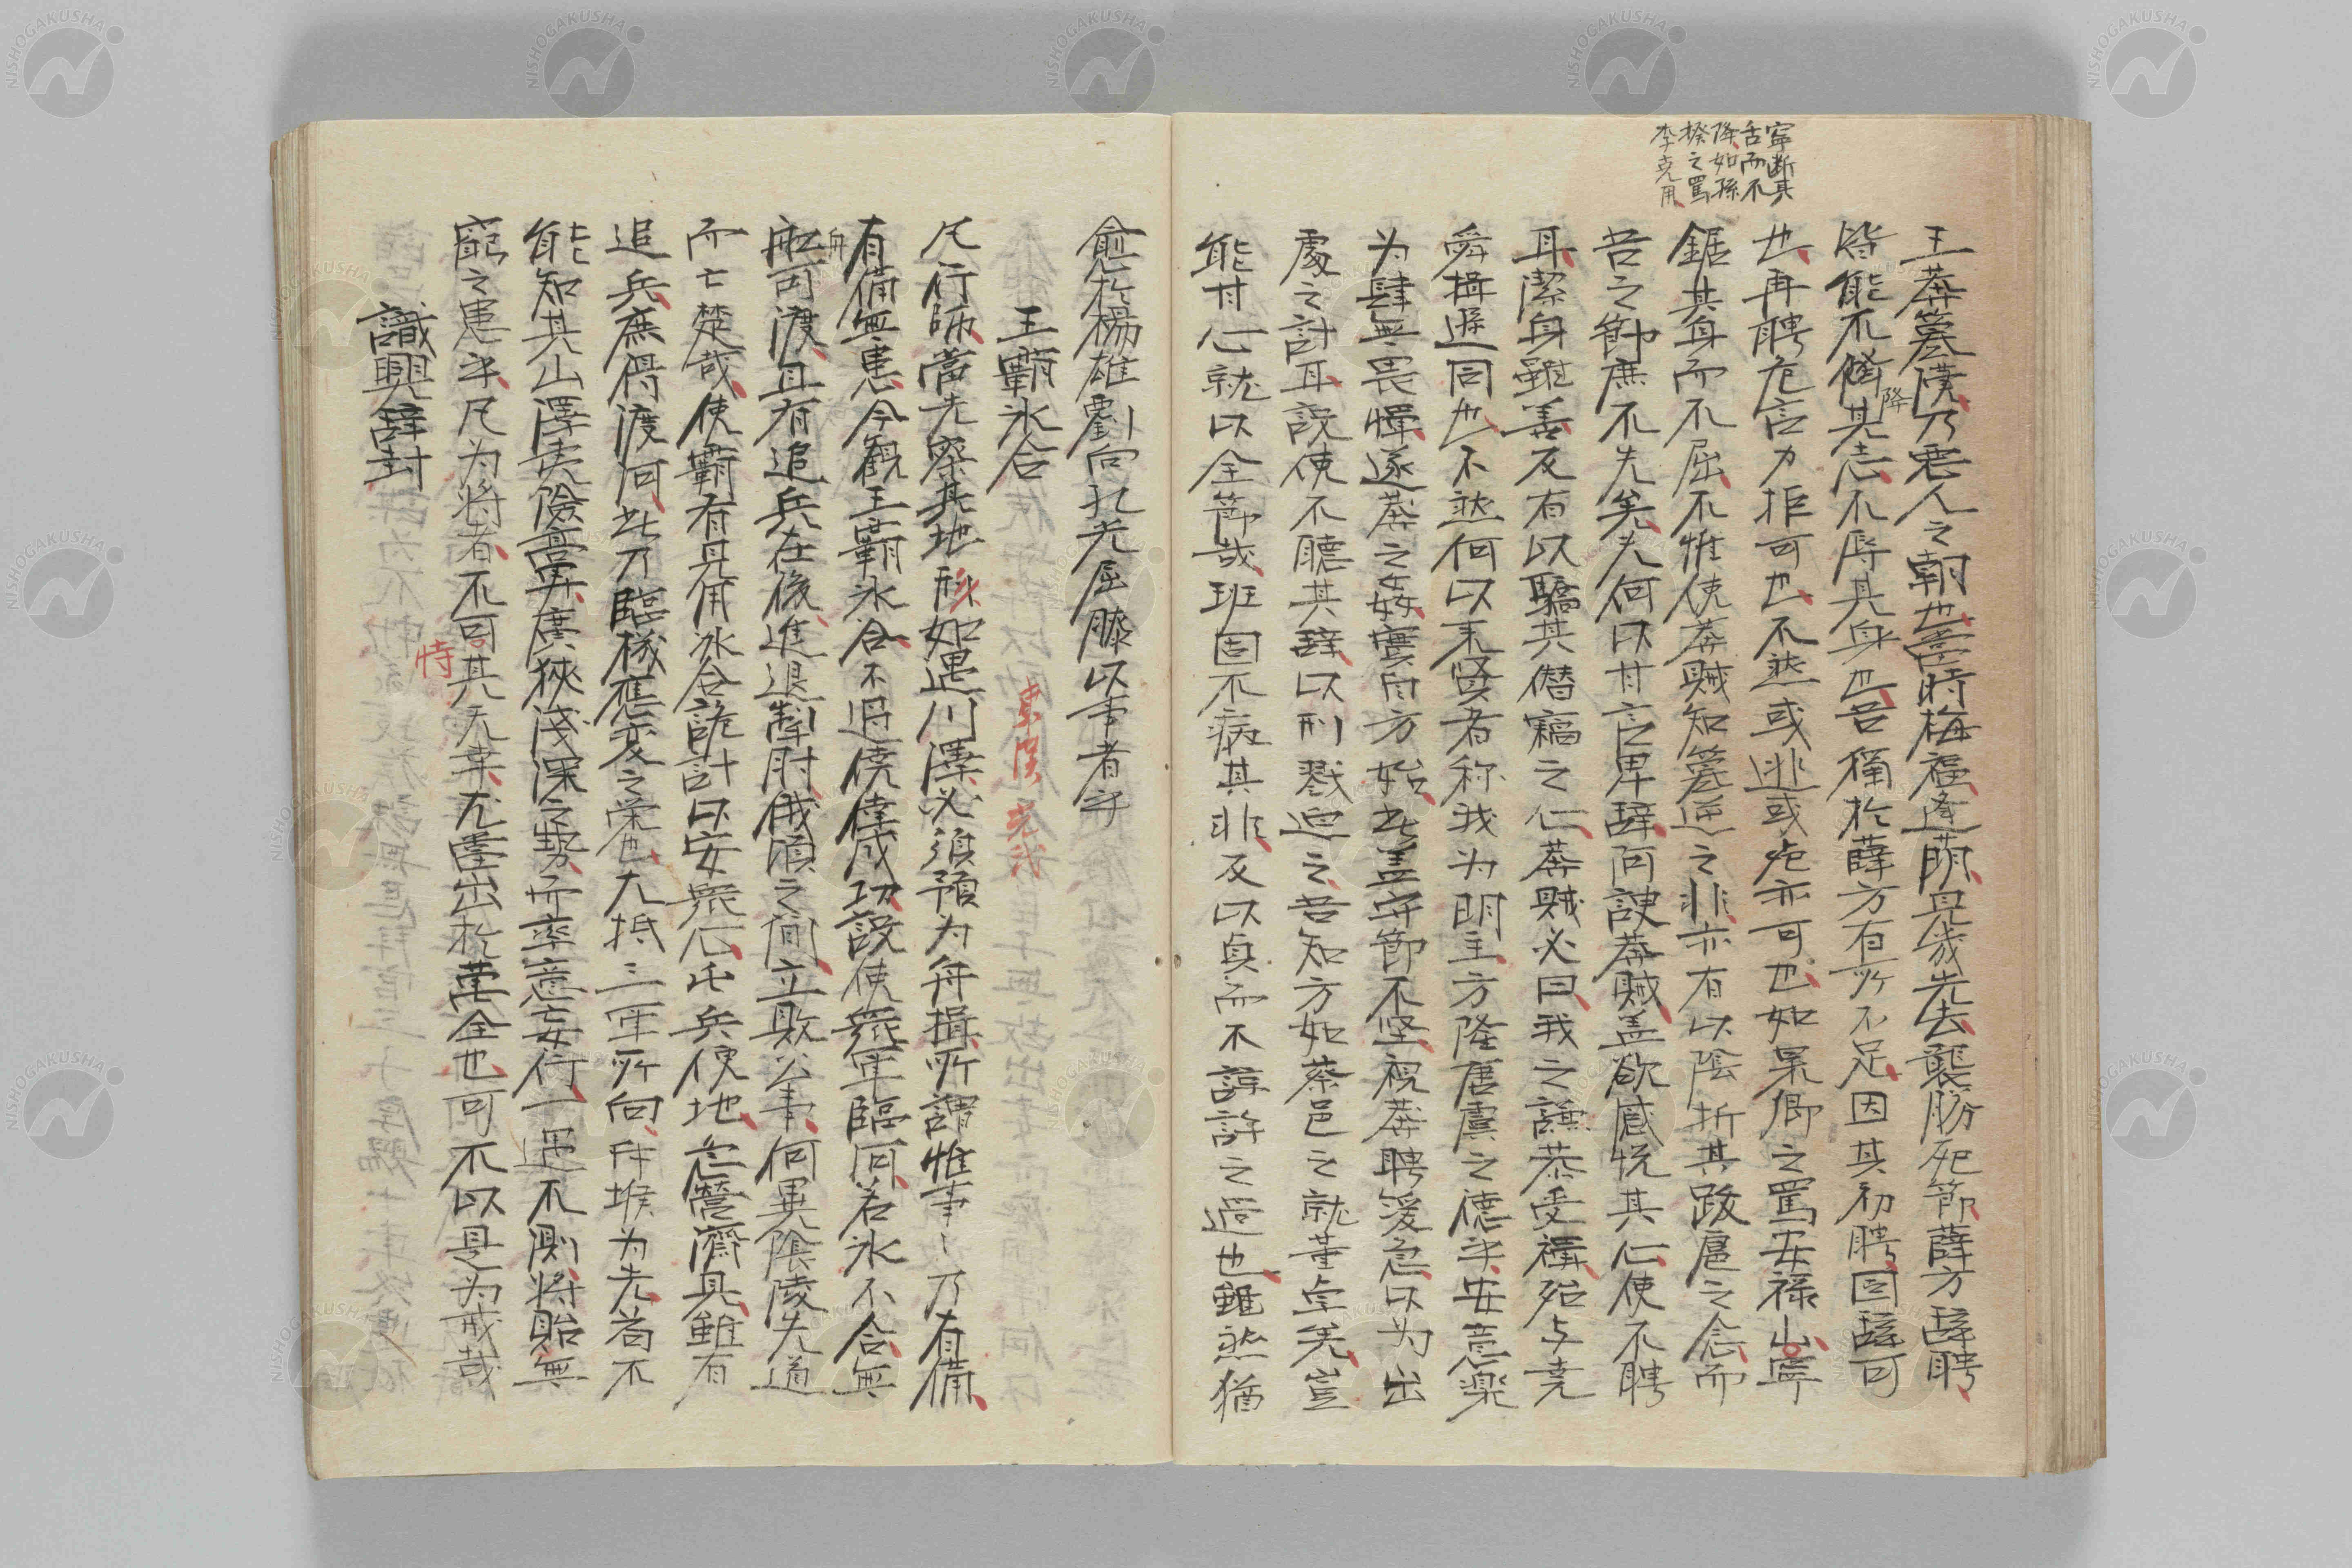 寧断其
舌而不
降如孫
揆之罵
李克用
王莽簒漢乃悪人之朝也當時梅福逢萠見幾先去襲勝死節薛方辞聘
皆能不降其志不辱其身也吾獨於薛方有所不足因其初聘固辞可
也再聘危言力拒可也不然或逃或死亦可也如杲卿之罵安禄山寧
鋸其身而不屈不惟使莽賊知簒逆之非亦有以陰折其跋扈之念而
吾之節庶不失矣夫何以甘言卑辞阿諛莽賊盖欲感悦其心使不聘
耳潔身雖善反有以驕其僭竊之心莽賊必曰我之謙恭受禅殆与尭
舜揖遜同也不然何以来賢者称我为明主方隆唐虞之德乎安意楽
为肆無畏憚遂莽之姦實自方始此盖守節不坚視莽聘湲急以为出
處之計耳設使不聴其辞以刑戮迫之吾知方如蔡邕之就董卓矣豈
能甘心就以全節哉班固不病其非反以貞而不諒許之過也雖然猶
愈於楊雄劉向孔光屈膝以事者乎
王覇氷合 東漢光武
凡行師當先察其地形如遇川澤必須預为舟揖所謂惟事〻乃有備
有備無患今觀王覇氷合不過僥倖成功設使衆軍臨河若氷不合無
舟
舡可渡且有追兵在後進退掣肘俄頃之間立敗公事何異陰陵失道
而亡楚哉使覇有見用氷合詭計以安衆心屯兵便地急營濟具雖有
追兵庶得渡河此乃臨機應変之策也大抵三軍所向斥堠为先苟不
能知其山澤夷険高寡廣狹浅深之勢而率意妄行一遇不測将貽無
窮之患乎凡为将者不可恃其天幸尤當出於萬全也可不以是为戒哉
識興辞封